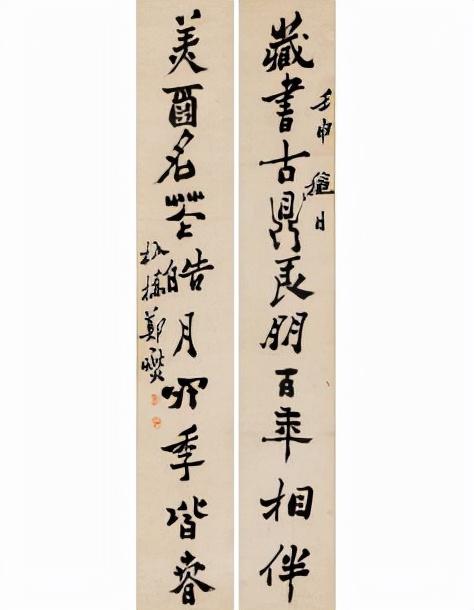 藏書古鼎良朋百年相伴
壬申穐日
美酉名茶皓月四季皆春
板橋鄭燮